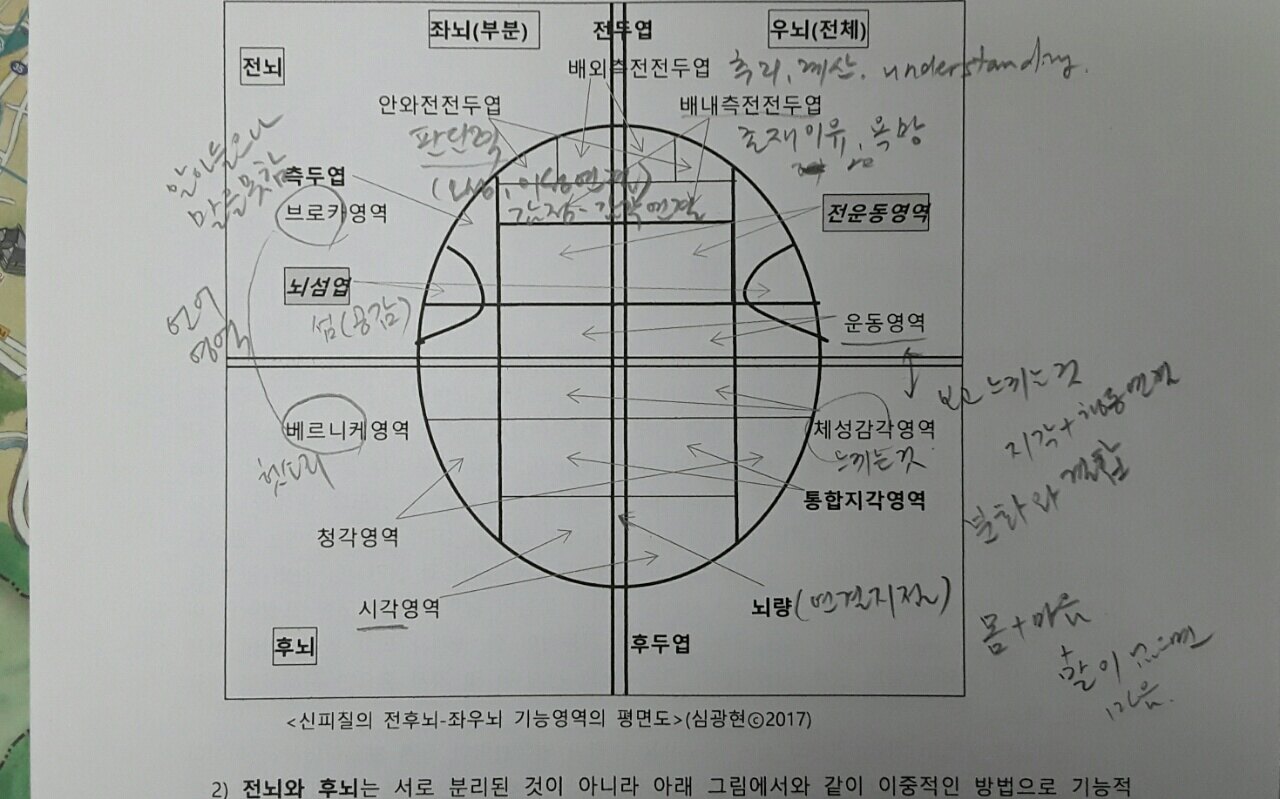 좌뇌(부분) 전두엽 우뇌(전체)
전뇌
배외측전전두엽 추리, 계산. understanding.
안와전전두엽 배내측전전두엽
판단력 존재이유, 욕망
알아들으나
말을못함
측두엽
브로카영역
전운동영역
뇌섬엽
섬(공감)
운동영역
언어
영역
보고 느끼는 것
베르니케영역 체성감각영역
헛소리 느끼는것
지각+
통합지각영역
분화와 결합
청각영역
시각영역
뇌량(연결지점)
몸+마음
후뇌 후두엽
<신피질의 전후뇌-좌우뇌 기능영역의 평면도>(심광현ⓒ2017)
2) 전뇌와 후뇌는 서로 분리된 것이 아니라 아래 그림에서와 같이 이중적인 방법으로 기능적